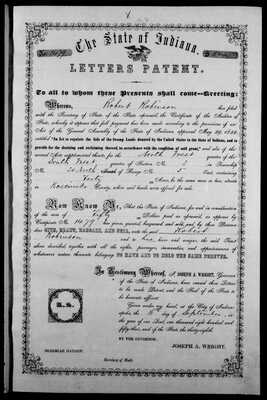 The State of Indiana.
LETTERS PATENT.
To all to whom these Presents shall come—Greeting:
Whereas, Robert Robinson has filed
with the Secretary of State of the State aforesaid, the Certificate of the Auditor of
State, whereby it appears that full payment has been made according to the provisions of an
Act of the General Assembly of the State of Indiana, approved May 29, 1852,
entitled "An Act to regulate the Sale of the Swamp Lands donated by the United States to the State of Indiana, and to
provide for the draining and reclaiming thereof, in accordance with the condition of said grant," and also of the
several Acts supplemental thereto, for the North West quarter of the
South West quarter of Section No. in Township
No. North of Range No. 5 containing
Forty Acres, be the same more or less, situate
in Kosciusko County, when said lands were offered for sale.
Now Know Ye, That the State of Indiana, for and in consideration
of the sum of Fifty Dollars paid as aforesaid, as appears by
Certificate No. 1479, Has given, granted, bargained and sold, and by these Presents
does GIVE, GRANT, BARGAIN, AND SELL, unto the said Robert
Robinson and to heirs and assigns, the said Tract
above described, together with all the rights, privileges, immunities, and appurtenances, of
whatsoever nature thereunto belonging TO HAVE AND TO HOLD THE SAME FOREVER.
L. S.
In Testimony Whereof, I, JOSEPH A. WRIGHT, Governor
of the State of Indiana, have caused these Letters
to be made Patent, and the Seal of the State to
be hereunto affixed.
Given under my hand, at the City of Indianapolis,
the day of September, in
the year of our Lord, one thousand eight hundred and
fifty-, and of the State the thirty-eighth.
BY THE GOVERNOR,
JOSEPH A. WRIGHT.
NEHEMIAH HAYDEN
Secretary of State